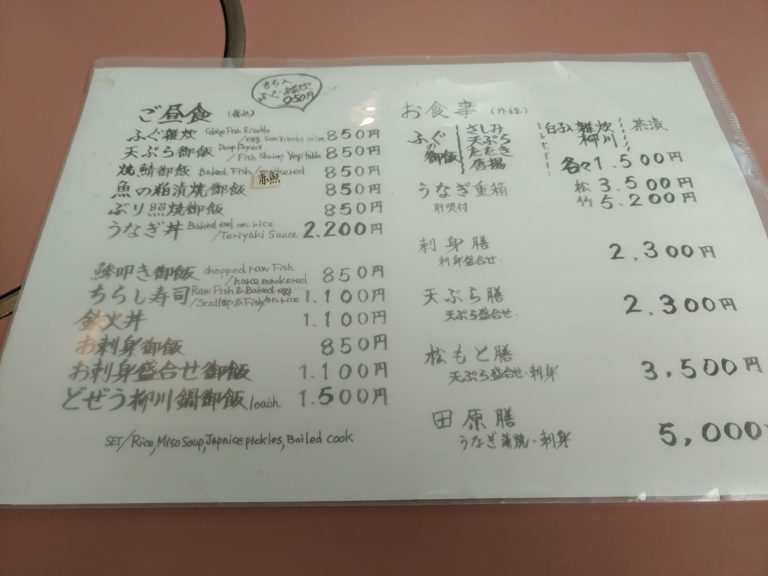 もち入
ふぐ雑炊
950円
ご昼食 (税込)
ふぐ雑炊 Globe Fish Risotto / egg 850円
天ぷら御飯 Deep Fryed / Fish Shrimp Vegetable 850円
焼鯖御飯 Baked Fish / mackered 850円
赤魚
魚の粕漬焼御飯 850円
ぶり照焼御飯 850円
うなぎ丼 Baked eel on rice / Teriyaki Sauce 2.200円
鯵叩き御飯 chopped raw Fish / horse mackered 850円
ちらし寿司 Raw Fish & Baked egg / Scallop & Fish / on rice 1.100円
鉄火丼 1.100円
お刺身御飯 850円
お刺身盛合せ御飯 1.100円
どぜう柳川鍋御飯 loach 1.500円
SET/Rice, Miso Soup, Japnise pickles, Boiled cook
お食事 (外税)
ふぐの御飯 さしみ 天ぷら たたき 唐揚 雑炊 柳川 茶漬
各々1.500円
うなぎ重箱 松 3.500円
肝吸付 竹 5.200円
刺身膳 2,300円
刺身盛合せ.
天ぷら膳 2,300円
天ぷら盛合せ.
松もと膳 3,500円
天ぷら盛合せ・刺身
田原膳 5,000円
うなぎ蒲焼・刺身